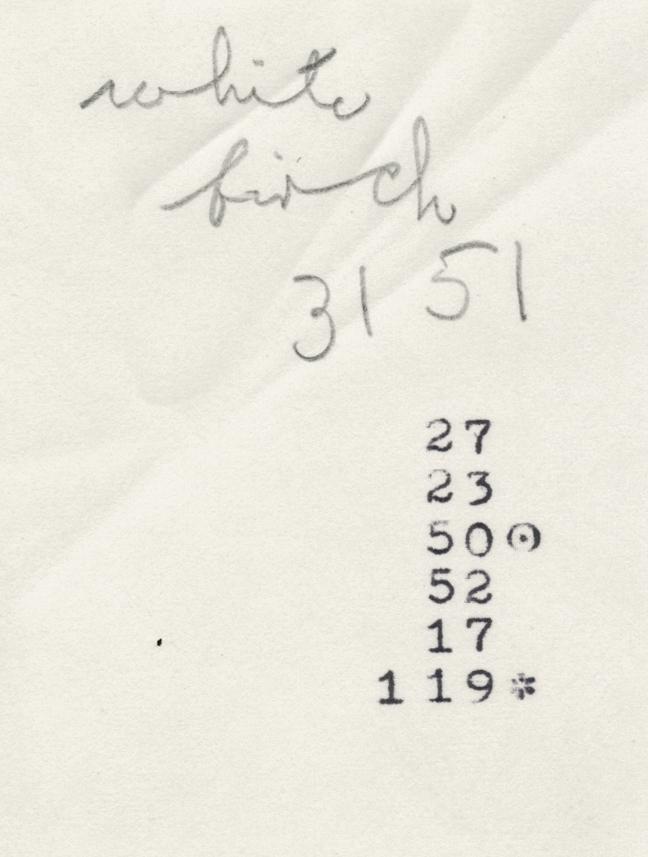 white
birch
31 51
27
23
50⊙
52
17
119*